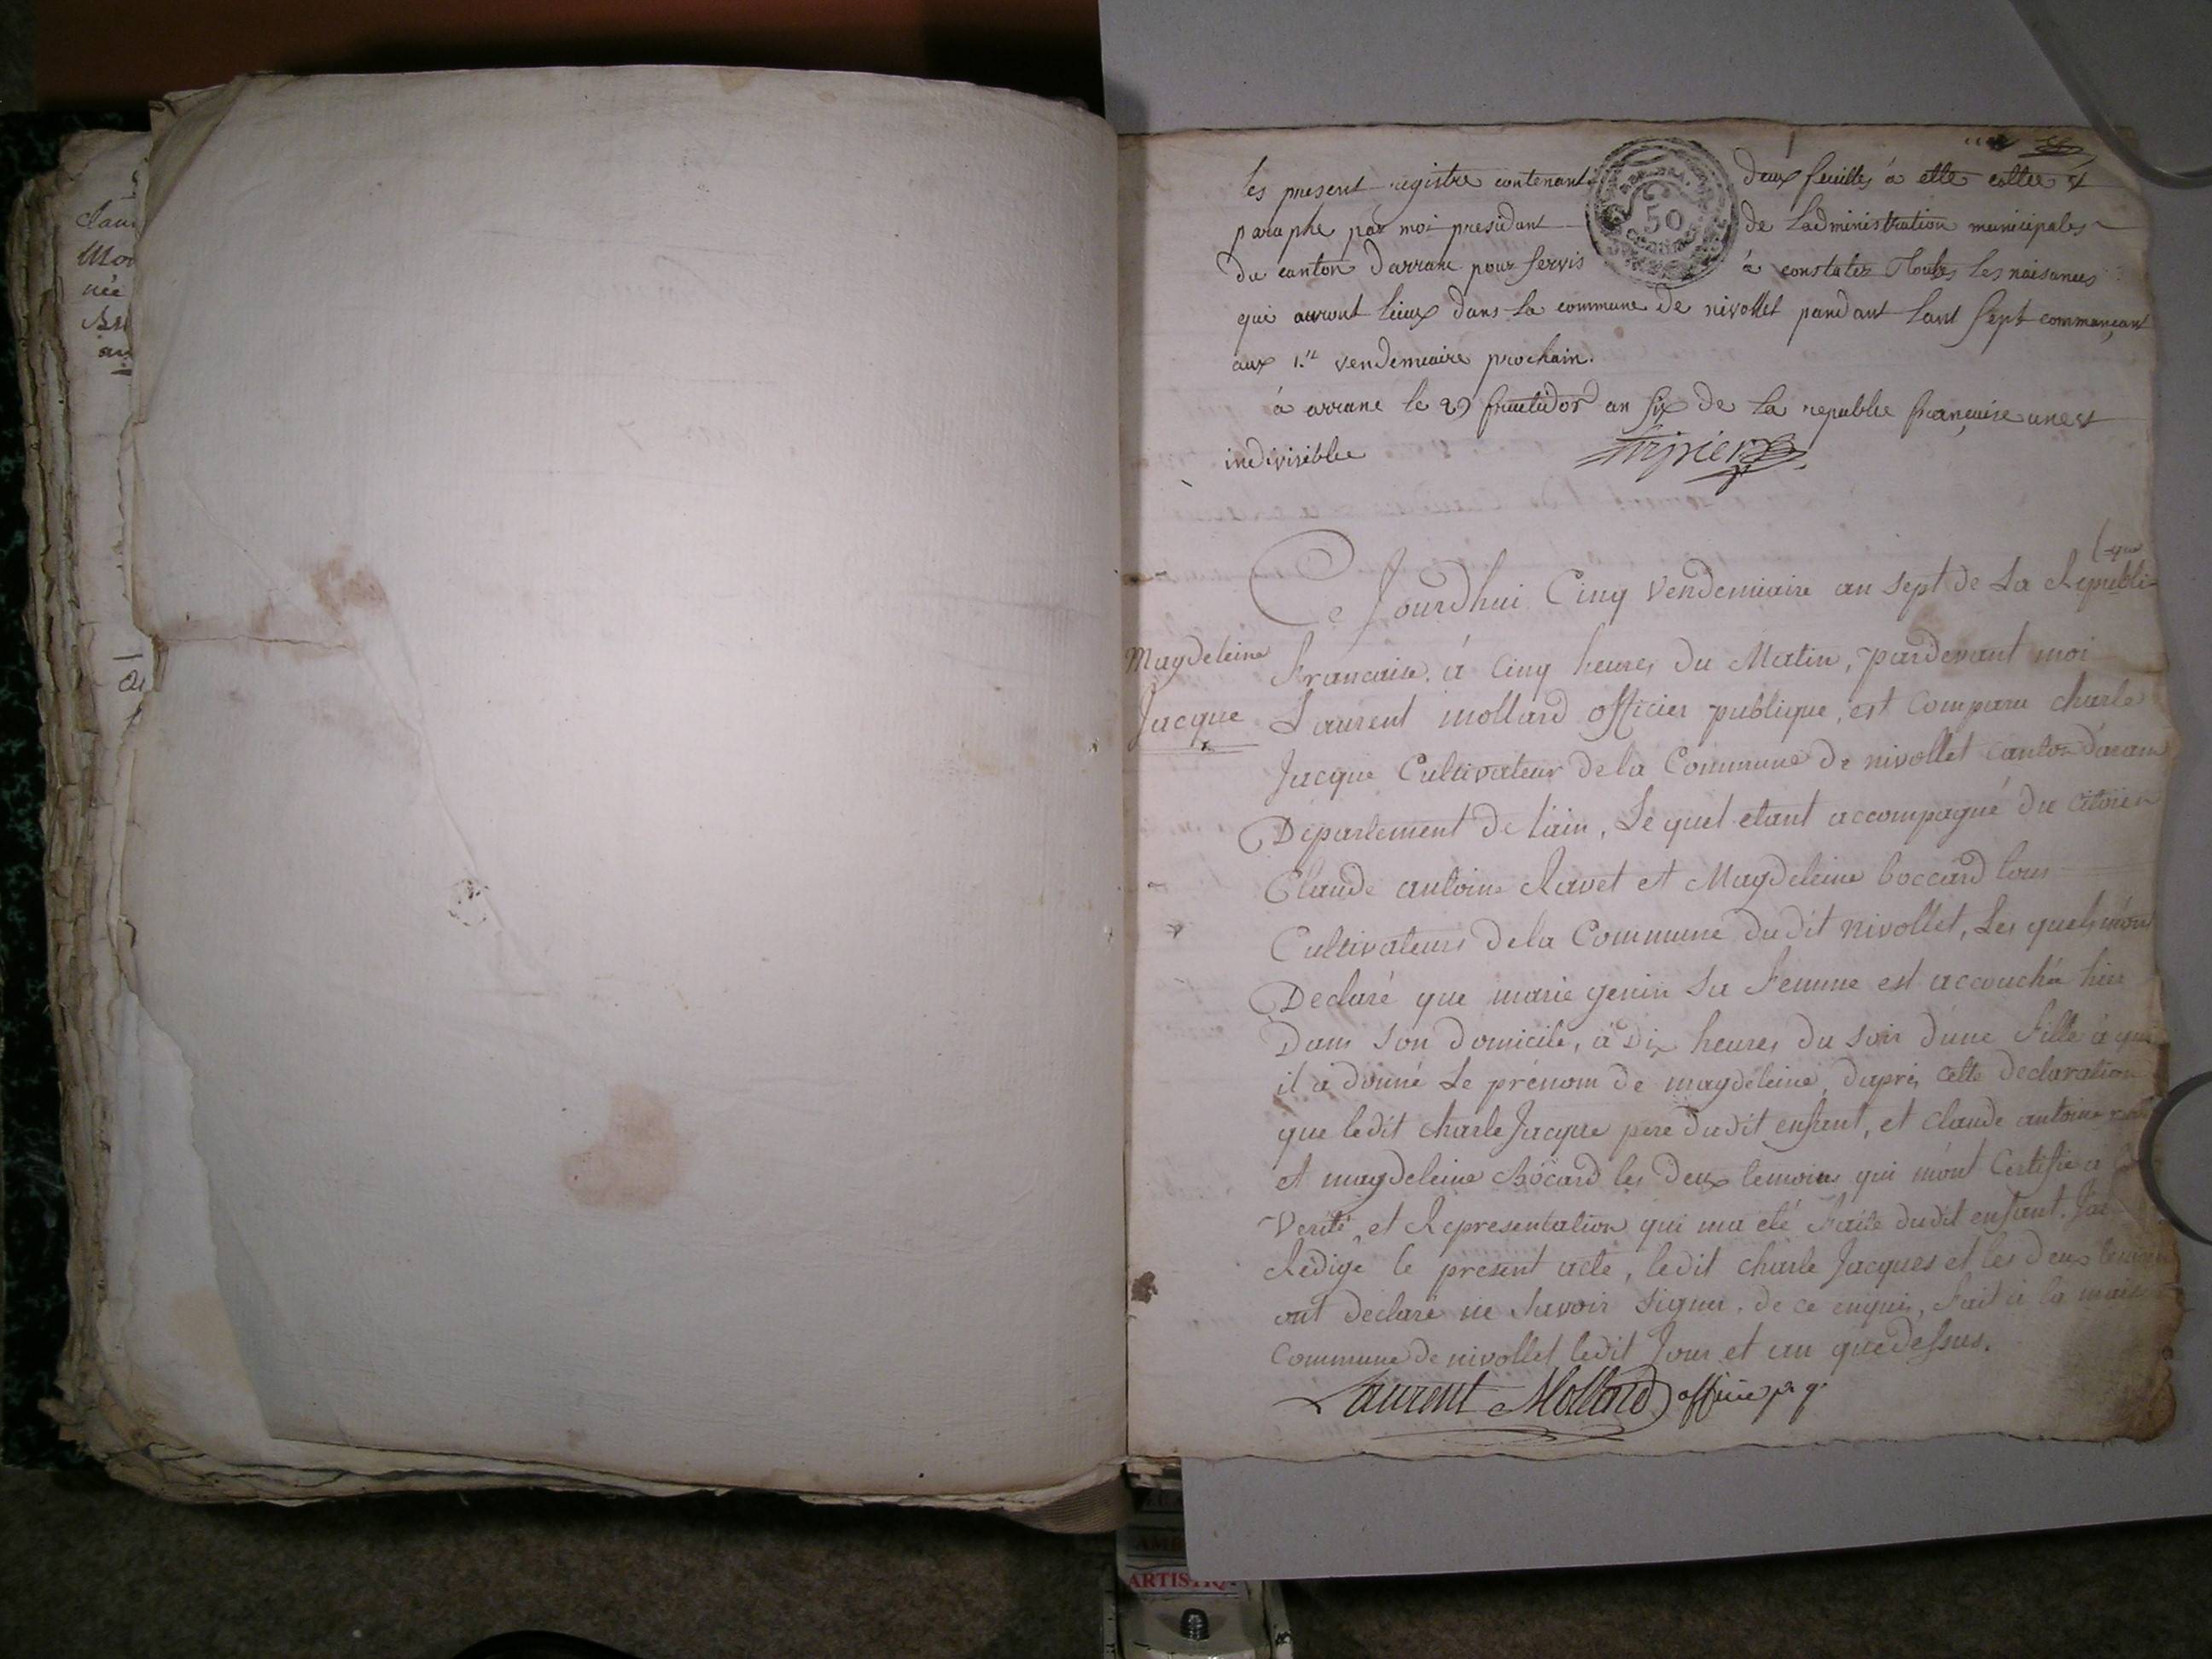 Clau
Mor
née
les present registre contenant deux feuilles à etté cottée et
paraphé par moi presidant de Ladministration municipales
du canton darrane pour servir à constater Toutes les naisances
qui auront lieux dans la commune de nivollet pandant lant sept commançant
aux 1.er vendemiaire prochain.
à arrane le 29 fructidor an six de la republee française une et
indivisiblee
REP. FRA.
50
CENTIMES
Ce Jourdhui Cinq vendemiaire an sept de La Republi-
que
Magdeleine
Jacque
francaise, à Cinq heures du Matin, pardevant moi
Laurent mollard officier publique, est Comparu charle
Jacque Cultivateur dela Commune de nivollet canton d'aran
Departement de lain, Le quel etant accompagné du citoien
Claude antoine Ravet et Magdeleine boccard tous
Cultivateurs dela Commune dudit nivollet, Les quels m'ont
Declaré que marie genin Sa femme est accouchée hier
Dans son domicile, à Dix heures du soir d'une fille à qui
il a donné Le prénom de magdeleine, daprès cette declaration
que ledit charle Jacque pere dudit enfant, et claude antoine
et magdeleine Bocard les deux temoins qui m'ont Certifié a
Verité, et Representation qui ma été faite dudit enfant. Jai
Redige le present acte, ledit charle Jacques et les deux temoins
ont declaré ne savoir signer, de ce enquis, fait à la maison
Commune de nivollet ledit Jour et an que dessus.
Laurent Mollard officie p. q.
ARTISTIQ